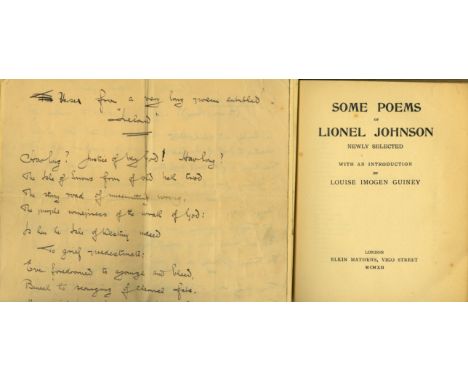 Verses from a very long poem entitled
"Ireland"
? Justice of my God! ?
The Isle of Sorrows from of old hath trod
The stony road of unremitting
The purple of the wrath of God:
Is hers the Isle of Destiny indeed
To grief predestinate:
Ever foredoomed to agonize and bleed,
Beneath the scourging of eternal fate.
SOME POEMS
OF
LIONEL JOHNSON
NEWLY SELECTED
WITH AN INTRODUCTION
BY
LOUISE IMOGEN GUINEY
LONDON
ELKIN MATHEWS, VIGO STREET
MCMXII